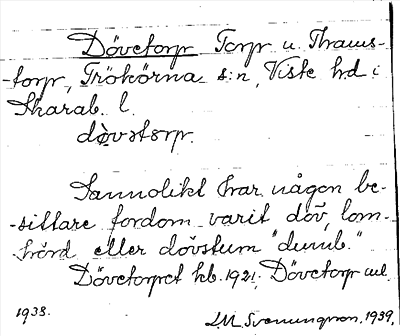 Dövetorp Torp u. Thams-
-torp, Trökörna s:n, Viste hd i
Skarab. l.
dövstorp.
Sannolikt har någon be-
-sittare fordom varit döv, lom-
-hörd eller dövstum "dumb."
Dövetorpet hb. 1921; Dövetorp
1938. Svenungson, 1939,